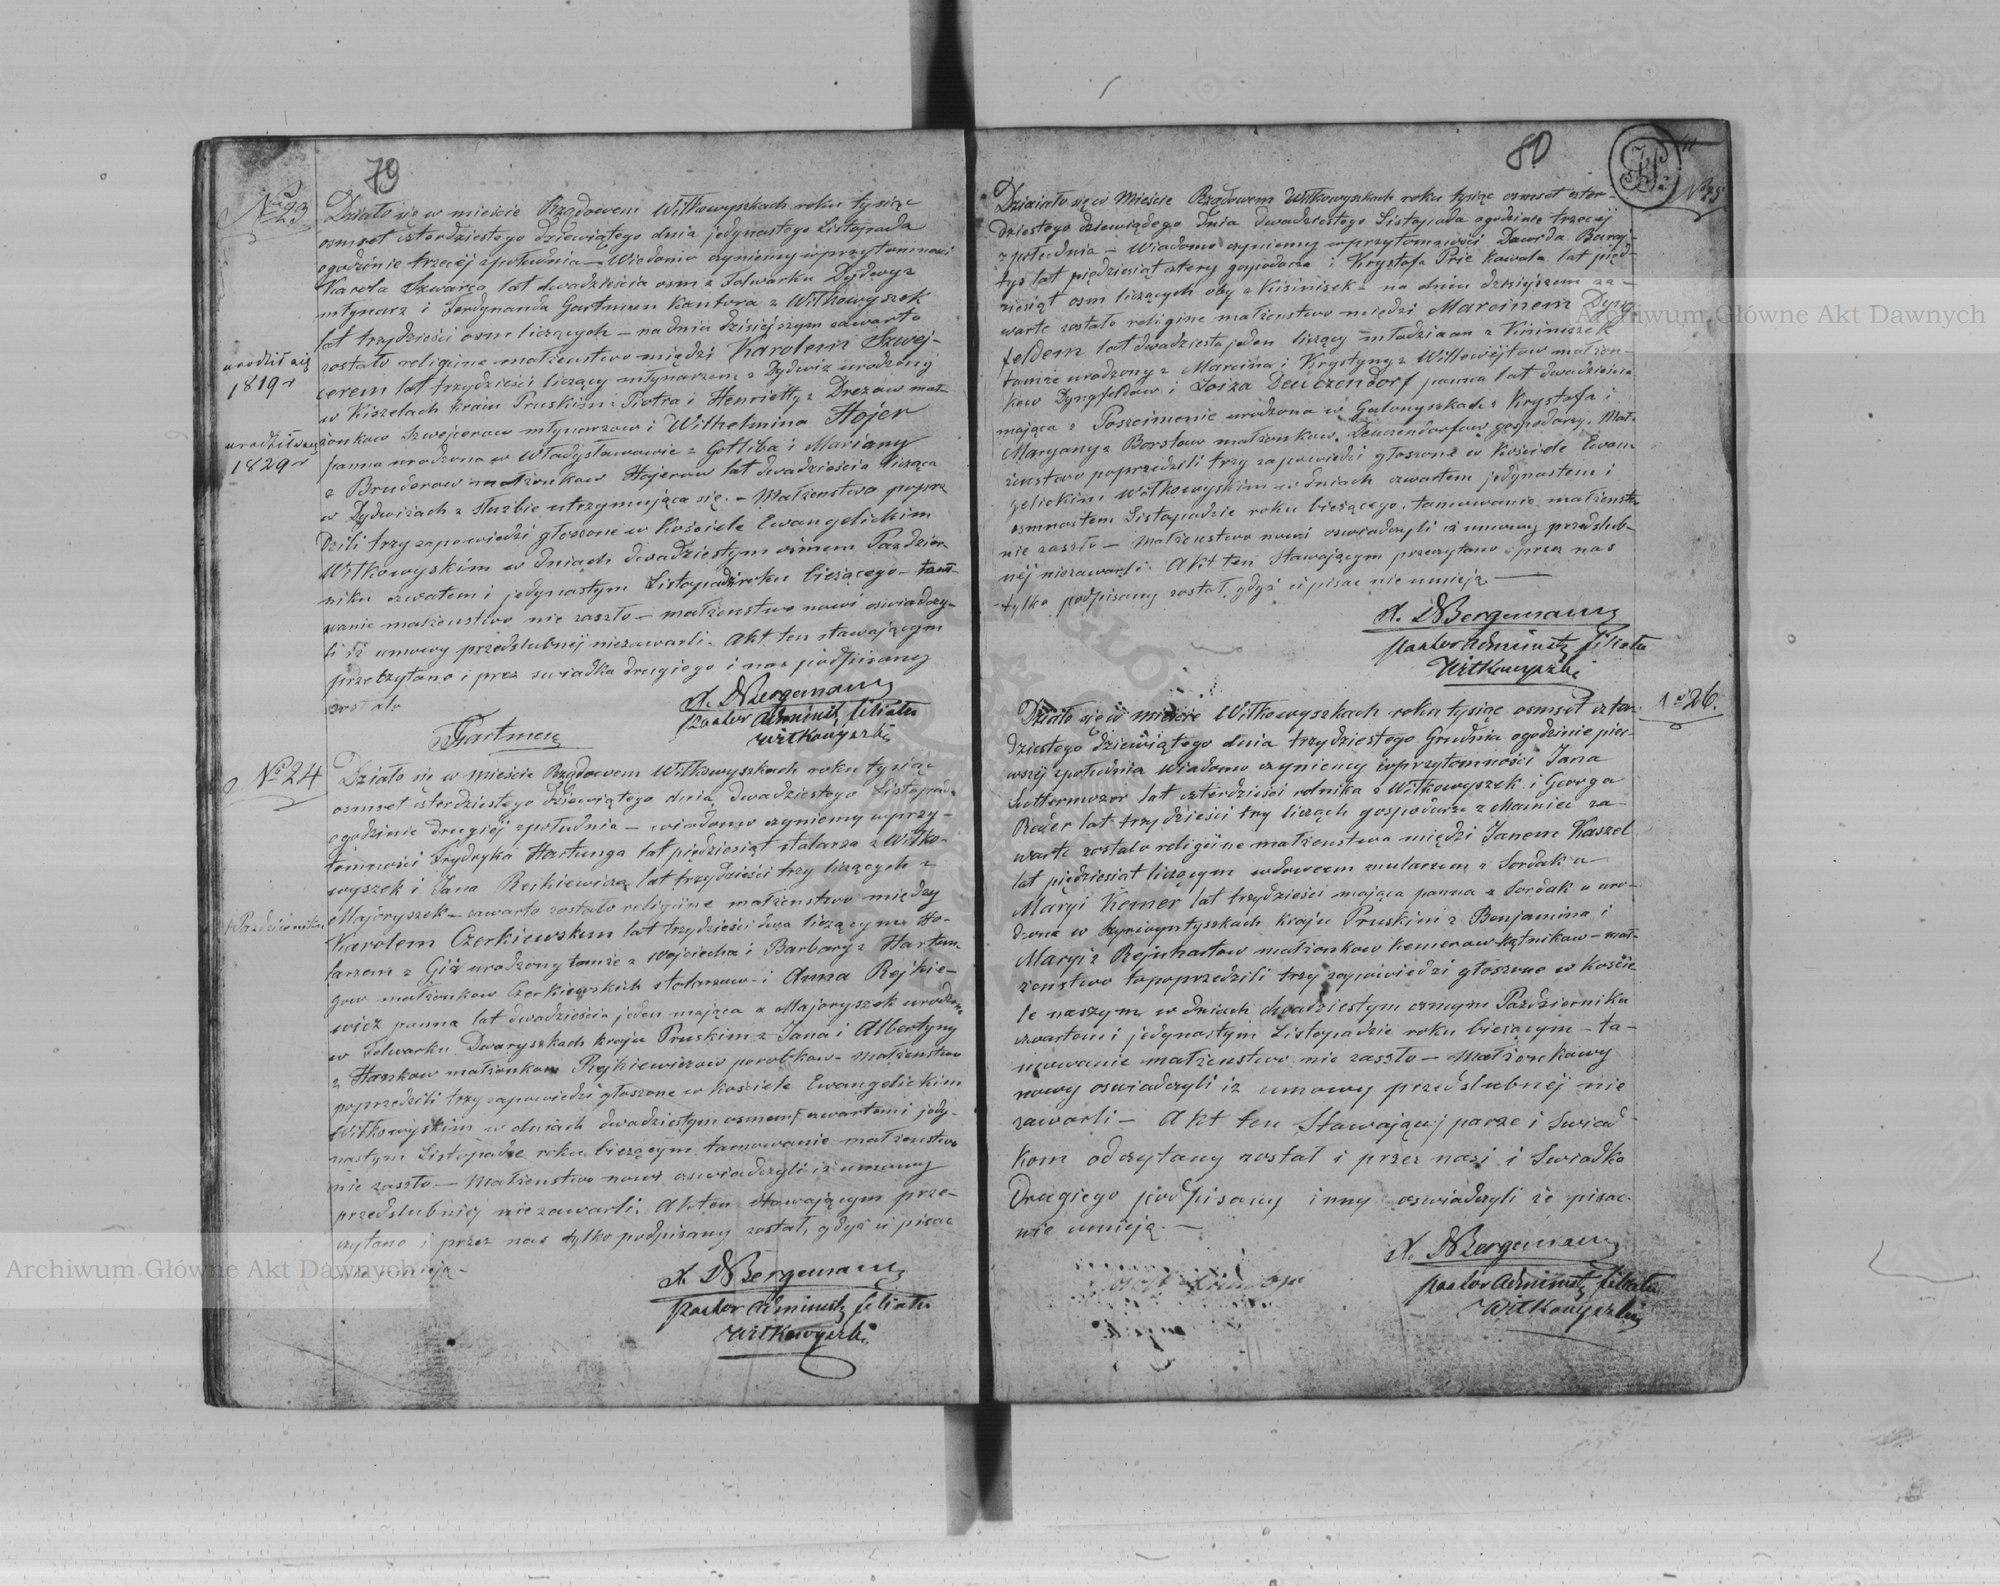 79
No 23
Działo się w mieście Rządowem Wiłkowyszkach roku tysiąc
osmset czterdziestego dziewiątego dnia jedynastego Listopada
ogodzinie trzeciej zpołudnia – Wiadomo czyniemy wprzytomności
Karola Szwarca lat dwadzieścia osm z Folwarku Dydwyz
młynarz i Ferdynanda Gartman Kantora z Wiłkowyszek
lat trzydzieści osm liczących – na dniu dzisiejszym zawarto
zostało religijne małżenstwo między Karolem Szwej-
urodził się
1819 r
cerem lat trzydzieści liczący młynarzem z Dydwiz urodzony
w Kiszelach kraiu Pruskim z Piotra i Henrietty z Drezow mał-
żonkow Szwejcerow młynarzow i Wilhelmina Hojer
urodziła się
1829 r
panna urodzona w Władysławowie z Gotliba i Maryanny
z Bruderow małżonkow Hojerow lat dwadzieścia licząca
w Dydwiżach z służbie utrzymująca się. – Małżenstwo poprze
dzili trzy zapowiedzi głoszone w Kościele Ewangelickim
Wiłkowyskim w dniach dwadziestym ósmem Pazdzier-
niku czwatem i jedynastym Listopada roku bieżącego – tam-
wanie małżenstwo nie zaszło – małżenstwo nowi oswiadczy-
li iż umowy przedslubnéj niezawarli – Akt ten stawającym
przeczytano i przez swiadka drugiego i nas podpisany
został.
FGartman
X. DBergemann
pastor Administ filiału
Wiłkowyszki
No 24
Działo się w mieście Rządowem Wiłkowyszkach roku tysiąc
osmset czterdziestego dziewiątego dnia dwadziestego Listopada
ogodzinie drugiéj zpołudnia – wiadomo czyniemy wprzy-
tomności Frydryka Hartunga lat pięćdziesiąt stolarza z Wiłko-
wyszek i Jana Rejkiewicza lat trzydzieści trzy liczących z
Majoryszek – zawarto zostało religijne małżenstwo między
+ Pazdziernika
Karolem Czerkiewskim lat trzydzieści dwa liczącym sto-
larzem z Giż urodzony tamże z Wojciecha i Barbary z Hartun-
gow małżonkow Czerkiewskich stolarzow – i Anna Rejkie-
wicz panna lat dwadzieścia jeden mająca z Majoryszek urodzona
w Folwarku Dwaryszkach kraju Pruskim z Jana i Albertyny
z Harzkow małżonkow Rejkiewiczow parobkow – Małżenstwo
poprzedzili trzy zapowiedzi głoszone w kościele Ewangelickim
Wiłkowyskim w dniach dwadziestym osmem + czwartem i jedy-
nastym Listopadzie roku bieżącym tamowanie małżenstwo
nie zaszło – Małżenstwo nowi oswiadczyli iż umowy
przedslubnéj niezawarli. Akt ten stawającym prze-
czytano i przez nas tylko podpisany został, gdyż ci pisac
nie umieją –
X. DBergemann
pastor Administ filiału
Wiłkowyszki
80
No 25
Działo się w Mieście Rządowem Wiłkowyszkach roku tysiąc osmset czter-
dziestego dziewiądego dnia dwadziestego Listopada ogodzinie trzeciéj
zpołudnia – Wiadomo czyniemy wprzytomności Dawida Barej-
tys lat pięćdziesiąt cztery gospodarza i Krysztofa Prie kowala lat pięć-
ziesiąt osm liczących oby z Kisiniszek – na dniu dzisiejszem za-
warte zostało religijne małżenstwo między Marcinem Dyng
feldem lat dwadzieścia jeden liczący młodzian z Kisiniszek
tamże urodzony z Marcina i Krystyny z Willowejtow małżon-
kow Dyngfeldow i Loiza Deutzendorf panna lat dwadzieścia
mająca z Poszeimenie urodzona w Galonyszkach z Krysztofa i
Maryany z Borsław małżonkow Deutzendorfow gospodarzy. Mał-
żenstwo poprzedzili trzy zapowiedzi głoszone w kościele Ewan-
gelickim Wiłkowyskim w dniach czwartem jedynastem i
osmnastem Listopadzie roku bieżącego. tamowanie małżenstwo
nie zaszło – Małżenstwo nowi oswiadczyli iż umowy przedslub-
néj niezawarli. Akt ten Stawającym przeczytano i przez nas
tylko podpisany został, gdyż ci pisac nie umieją –
X. DBergemann
pastor Administ filiału
Wiłkowyszki
No 26.
Działo się w mieście Wiłkowyszkach roku tysiąc osmset czter-
dziestego dziewiątego dnia trzydziestego Grudnia ogodzinie pier-
wszéj zpołudnia Wiadomo czyniemy wprzytomności Jana
Luttermozer lat czterdzieści rolnika z Wiłkowyszek i Georga
Reder lat trzydzieści trzy liczących gospodarza z Mainiew za-
warte zostało religijne małżenstwo między Janem Kaszel
lat pięćdziesiat liczącym wdowcem mularzem z Sordak a
Maryi Kemer lat trzydzieści mająca panna z Sordak a uro-
dzona w Szyrwyntyszkach kraju Pruskim z Benjamina i
Maryi z Rejnhartow małżonkow Kemerow kątnikow – mał-
żenstwo topoprzedzili trzy zapowiedzi głoszone w koście
le naszym w dniach dwadziestym osmym Pazdziernika
czwartem i jedynastym Listopadzie roku bieżącym – ta-
mowanie małżenstwo nie zaszło – Małżonkowy
nowy oswiadczyli iż umowy przedslubnéj nie
zawarli – Akt ten Stawającéj parze i Swiad-
kom odczytany został i przez nasz i Swiadka
Drugiego podpisany inny oswiadczyli że pisac
nie umieją. –
X. DBergemann
pastor Administ filiału
Wiłkowyszki
Archiwum Główne Akt Dawnych
Archiwum Główne Akt Dawnych